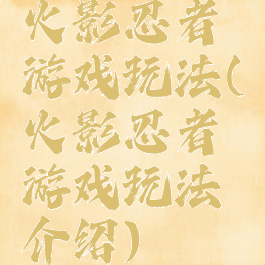 火影忍者
游戏玩法(
火影忍者
游戏玩法
介绍)